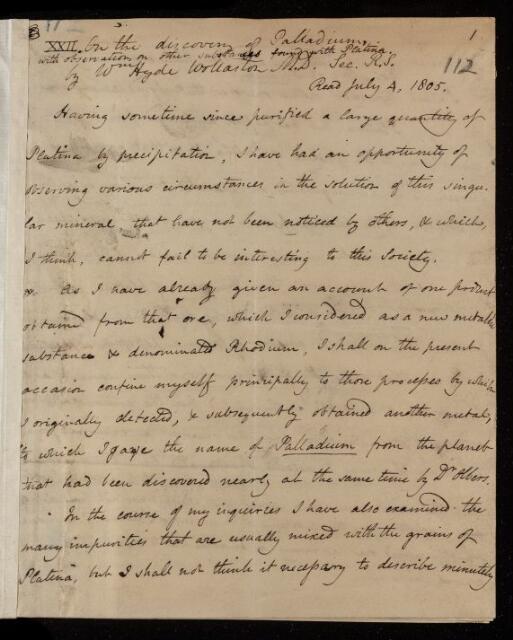 1
XXII. On the discovery of Palladium,
with observations on other substances found with Platina.
by Wm Hyde Wollaston M.D. Sec. R.S.
112
Read July 4, 1805.
Having sometime since purified a large quantity of
Platina by precipitation, I have had an opportunity of
observing various circumstances in the solution of this singu-
lar mineral, that have not been noticed by others, & which,
I think, cannot fail to be interesting to this Society.
As I have already given an account of one product
obtained from that ore, which I considered as a new metallic
substance & denominated Rhodium, I shall on the present
occasion confine myself principally to those processes by which
I originally detected, & subsequently obtained another metal,
to which I gave the name of Palladium from the planet
that had been discovered nearly at the same time by Dr Olbers.
In the course of my inquiries I have also examined the
many impurities that are usually mixed with the grains of
Platina, but I shall not think it necessary to describe minutely